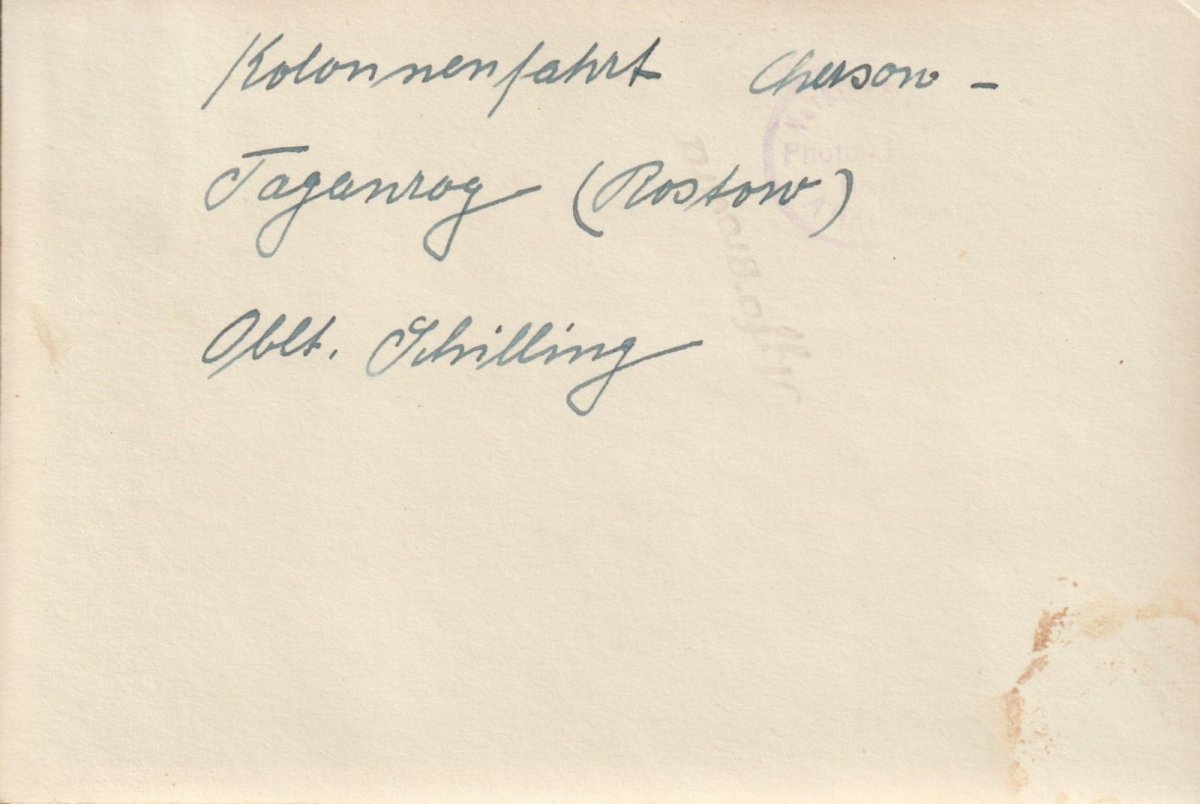 Kolonnenfahrt Cherson -
Taganrog (Rostow)
Oblt. Schilling
Photo